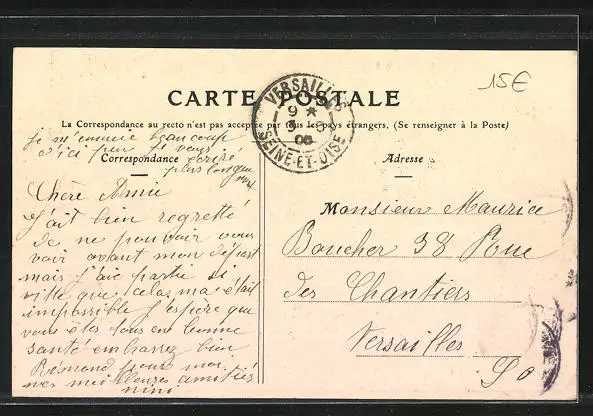 15€
CARTE POSTALE
La Correspondance au recto n'est pas acceptée par tous les pays étrangers. (Se renseigner à la Poste)
VERSAILLES
9 *
9 - 5
06
SEINE-ET-OISE
je m'ennuie beaucoup
d'ici peu je vous
écrirai
plus longuement
Correspondance
Adresse
Chère Amie
J'ait bien regretté
de ne pouvoir vous
voir avant mon départ
mais j'aie partie si
vitte que celas ma était
impossible j'espère que
vous êtes tous en bonne
santé embrassez bien
Raymond pour moi
mes meilleures amitiés
nini
Monsieur Maurice
Boucher 38 Rue
des Chantiers
Versailles
So